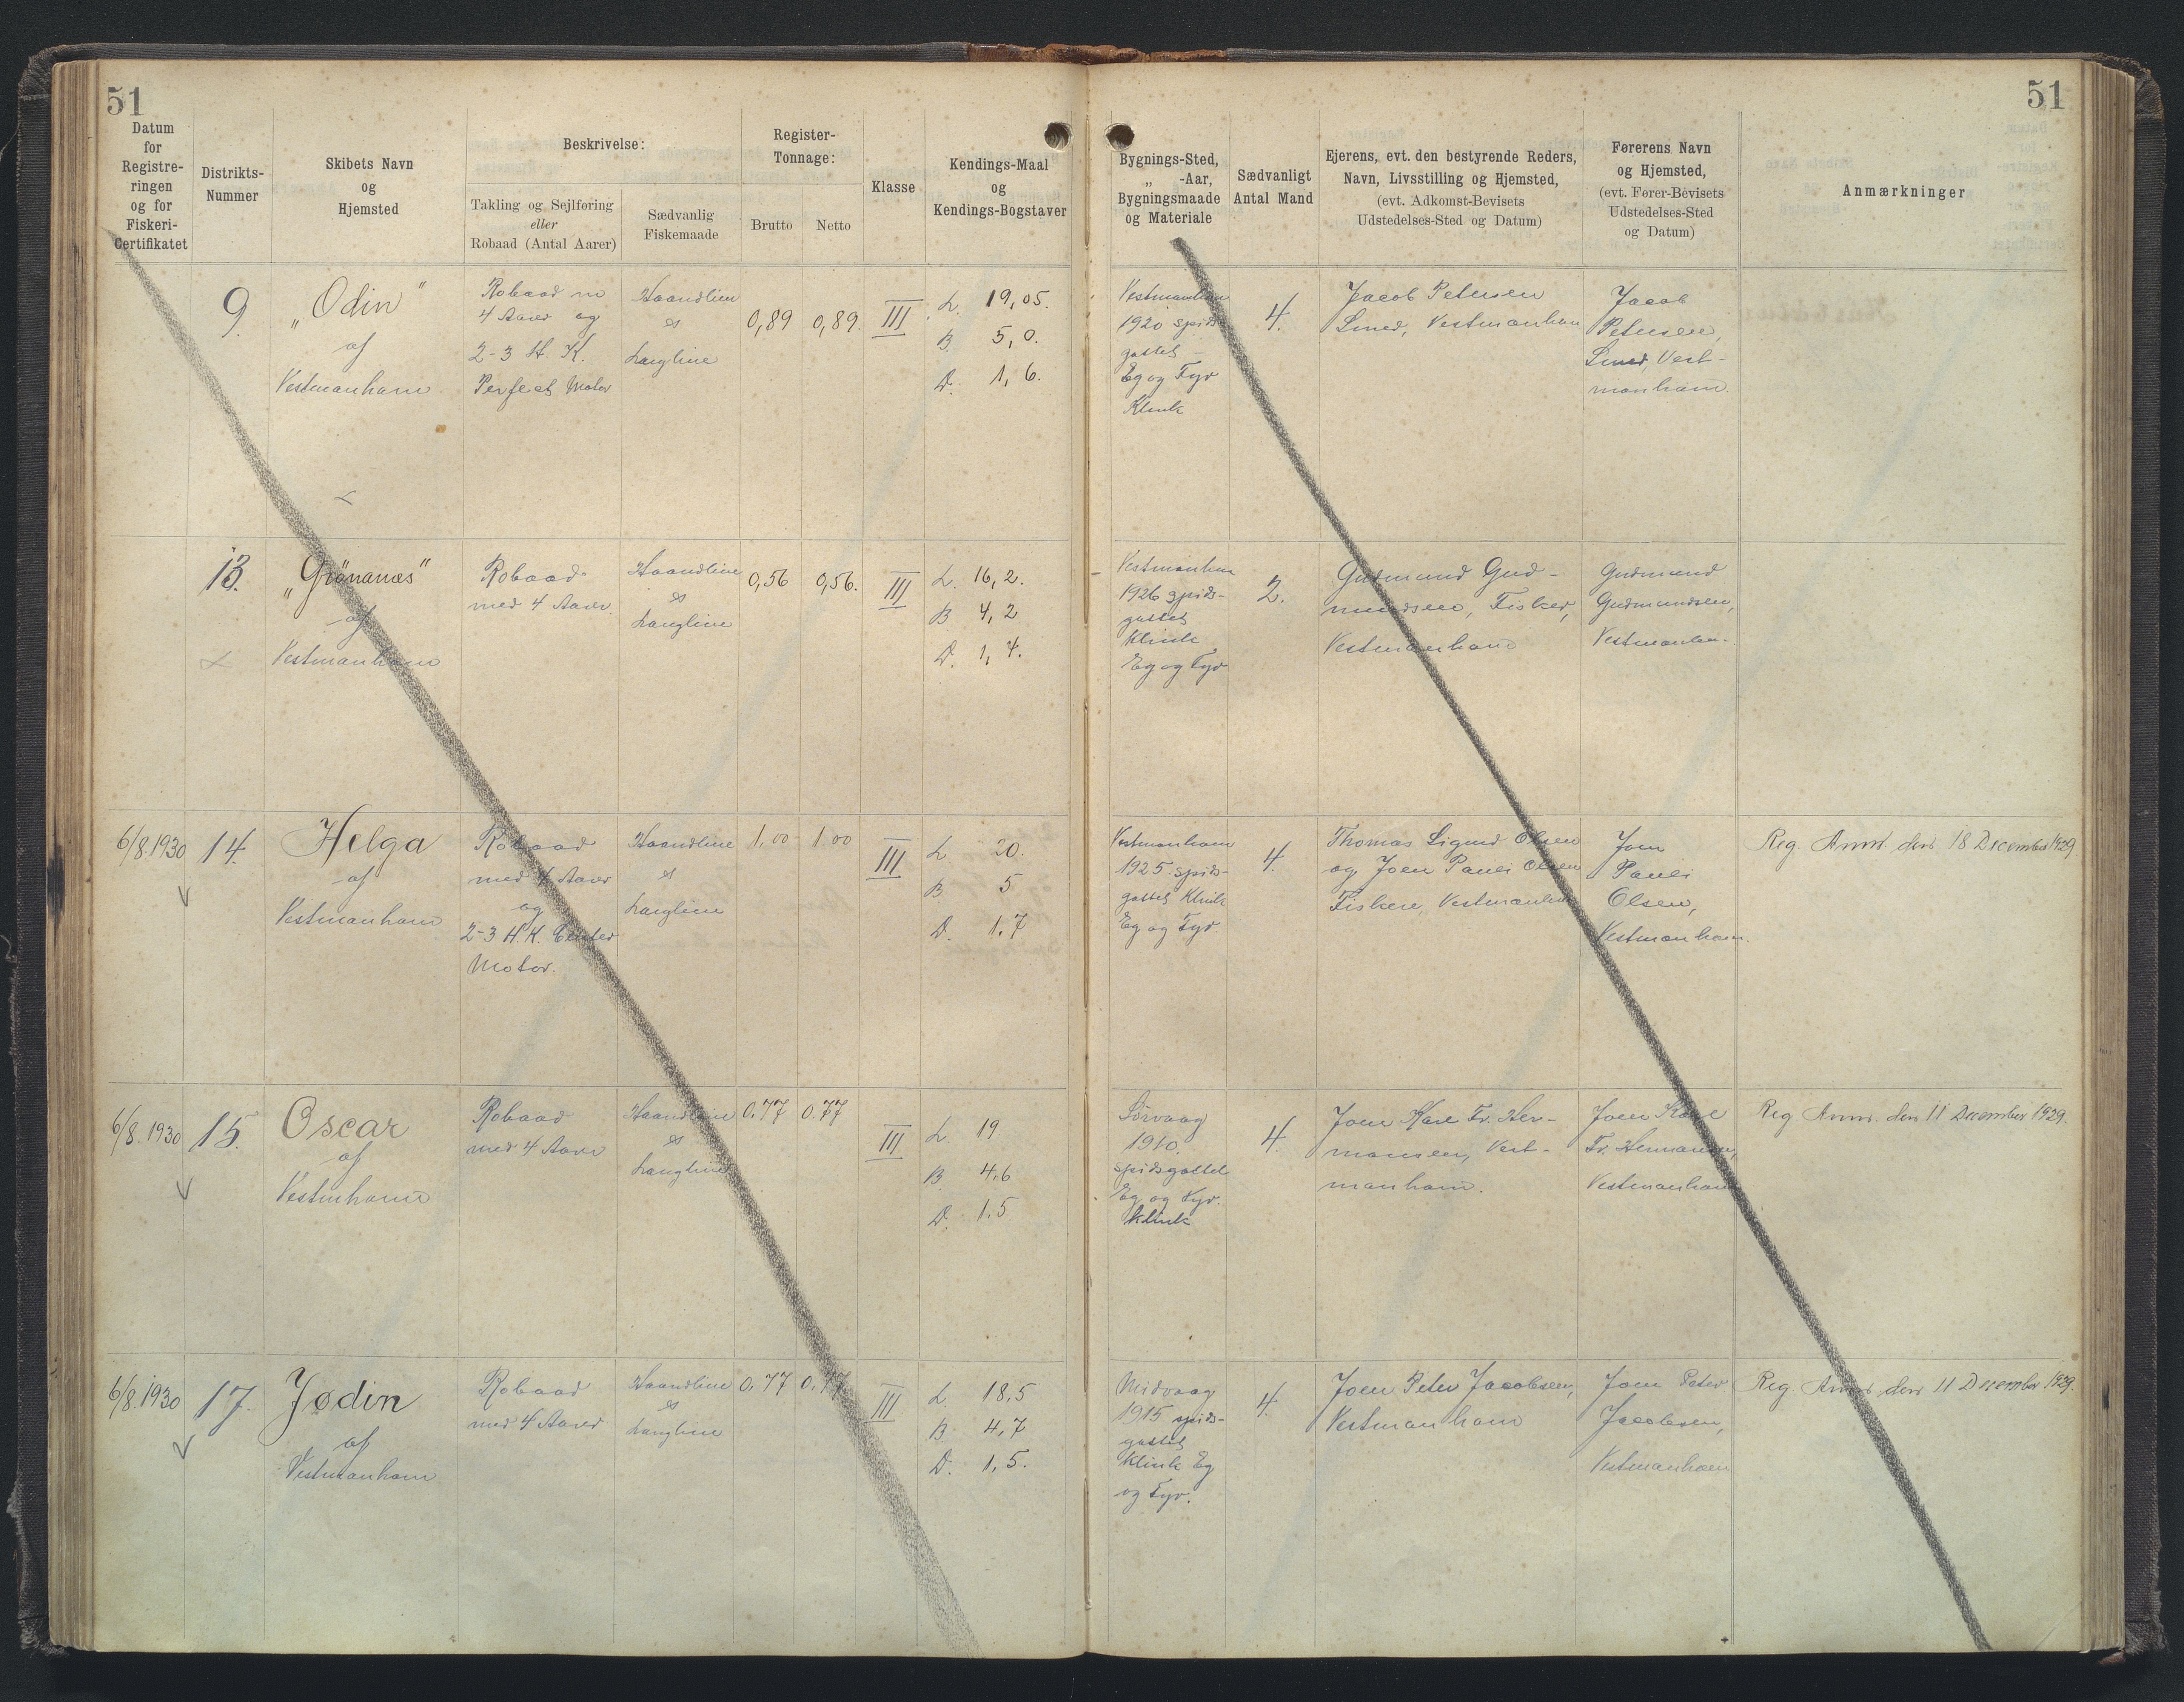 51
51
Datum
for
Registre-
ringen
og for
Fiskeri-
Certifikatet
Distrikts-
Nummer
Skibets Navn
og
Hjemsted
Beskrivelse:
Takling og Sejlføring
eller
Robaad (Antal Aarer)
Sædvanlig
Fiskemaade
Register-
Tonnage:
Brutto
Netto
Klasse
Kendings-Maal
og
Kendings-Bogstaver
Bygnings-Sted,
„ -Aar,
Bygningsmaade
og Materiale
Sædvanligt
Antal Mand
Ejerens, evt. den bestyrende Reders,
Navn, Livsstilling og Hjemsted,
(evt. Adkomst-Bevisets
Udstedelses-Sted og Datum)
Førerens Navn
og Hjemsted,
(evt. Fører-Bevisets
Udstedelses-Sted
og Datum)
Anmærkninger
9.
„Odin"
af
Vestmanhavn
Robaad m
4 Aarer og
2-3 H. K.
Perfect Motor
Haandline
&
Langline
0,89
0,89.
III
L. 19,05.
B. 5,0.
D. 1,6.
Vestmanhavn
1920 spids-
gattet -
Eg og Fyr
Klink
4.
Jacob Petersen
Smed, Vestmanhavn
Jacob
Petersen,
Smed, Vest-
manhavn.
13.
„Grönanæs"
af
Vestmanhavn
Robaad
med 4 Aarer.
Haandline
&
Langline
0,56
0,56.
III
L. 16,2.
B 4,2
D. 1,4.
Vestmanhavn
1926 spids-
gattet
Klink
Eg og Fyr
2.
Gudmund Gud-
mundsen, Fisker,
Vestmanhavn
Gudmund
Gudmundsen,
Vestmanhn.
6/8.1930
14.
Helga
af
Vestmanhavn
Robaad
med 4 Aarer
og
2-3 H.K.
Motor.
Haandline
&
Langline
1,00
1.00
III
L. 20.
B 5
D. 1.7
Vestmanhavn
1925 spids-
gattet Klink
Eg og Fyr
4.
Thomas Sigurd Olsen
og Joen Pauli Olsen
Fiskere, Vestmanhavn
Joen
Pauli
Olsen,
Vestmanhavn.
Reg. Anm. den 18 December 1929.
6/8.1930
15.
Oscar
af
Vestmhavn
Robaad
med 4 Aarer
Haandline
&
Langline
0.77
0.77
III
L. 19
B. 4,6
D. 1.5
Sørvaag
1910.
spidsgattet
Eg og Fyr.
Klink
4.
Joen Kare Fr. Her-
mansen, Vest-
manhavn.
Joen Kare
Fr. Hermansen,
Vestmanhavn
Reg Anm. den 11 December 1929.
6/8.1930
17.
Jødin
af
Vestmanhavn
Robaad
med 4 Aarer
Haandline
&
Langline
0.77
0.77
III
L. 18,5
B. 4,7
D. 1,5.
Midvaag
1915 spids-
gattet
Klink Eg
og Fyr.
4.
Joen Peter Jacobsen,
Vestmanhavn
Joen Peter
Jacobsen,
Vestmanhavn
Reg Anm. den 11 December 1929.